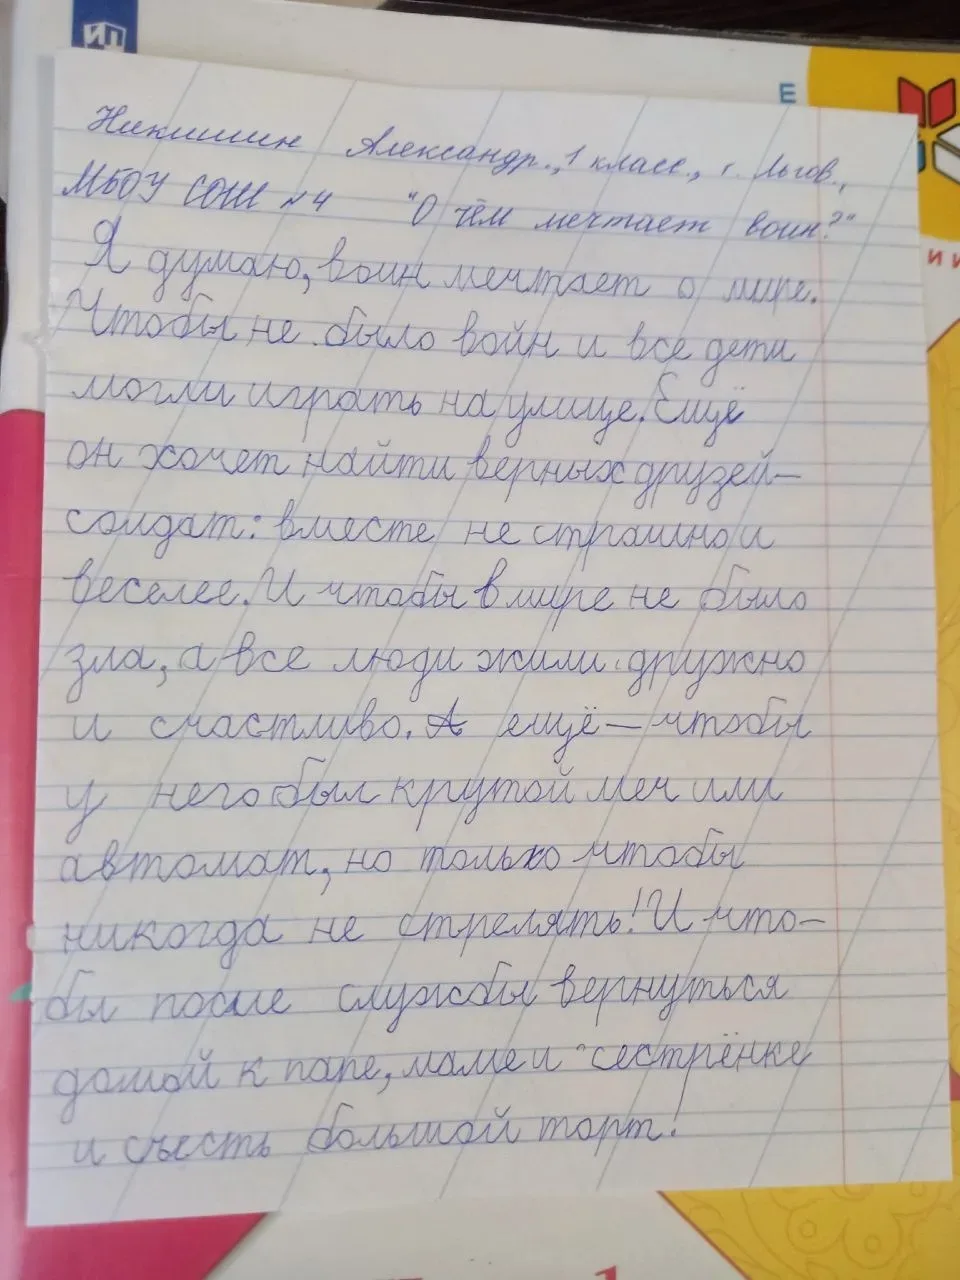 Никишин Александр., 1 класс., г. Льгов.,
МБОУ СОШ №4 "О чём мечтает воин?"
Я думаю, воин мечтает о мире.
Чтобы не было войн и все дети
могли играть на улице. Ещё
он хочет найти верных друзей-
солдат: вместе не страшно и
веселее. И чтобы в мире не было
зла, а все люди жили дружно
и счастливо. А ещё - чтобы
у него был крутой меч или
автомат, но только чтобы
никогда не стрелять! И что-
бы после службы вернуться
домой к папе, маме и сестрёнке
и съесть большой торт!